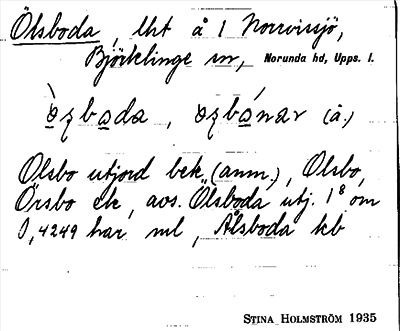 Ölsboda, lht å 1 Norrvissjö,
Björklinge sn, Norunda hd, Upps. l.
òzbada, ozbónar (å.)
Olsbo utjord bek. (anm.), Olsbo,
Örsbo ek, avs. Ölsboda utj. 1⁸ om
0,4249 har ml, Ålsboda kb
STINA HOLMSTRÖM 1935